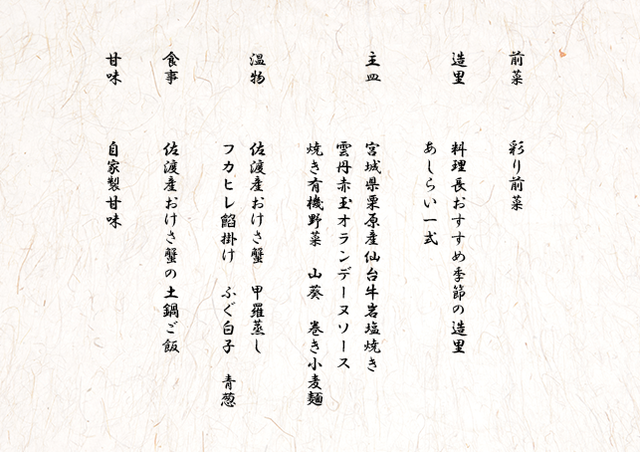 前菜　彩り前菜
造里　料理長おすすめ季節の造里
あしらい一式
主皿　宮城県栗原産仙台牛岩塩焼き
雲丹赤玉オランデーヌソース
焼き有機野菜　山葵　巻き小麦麺
温物　佐渡産おけさ蟹　甲羅蒸し
フカヒレ餡掛け　ふぐ白子　青葱
食事　佐渡産おけさ蟹の土鍋ご飯
甘味　自家製甘味